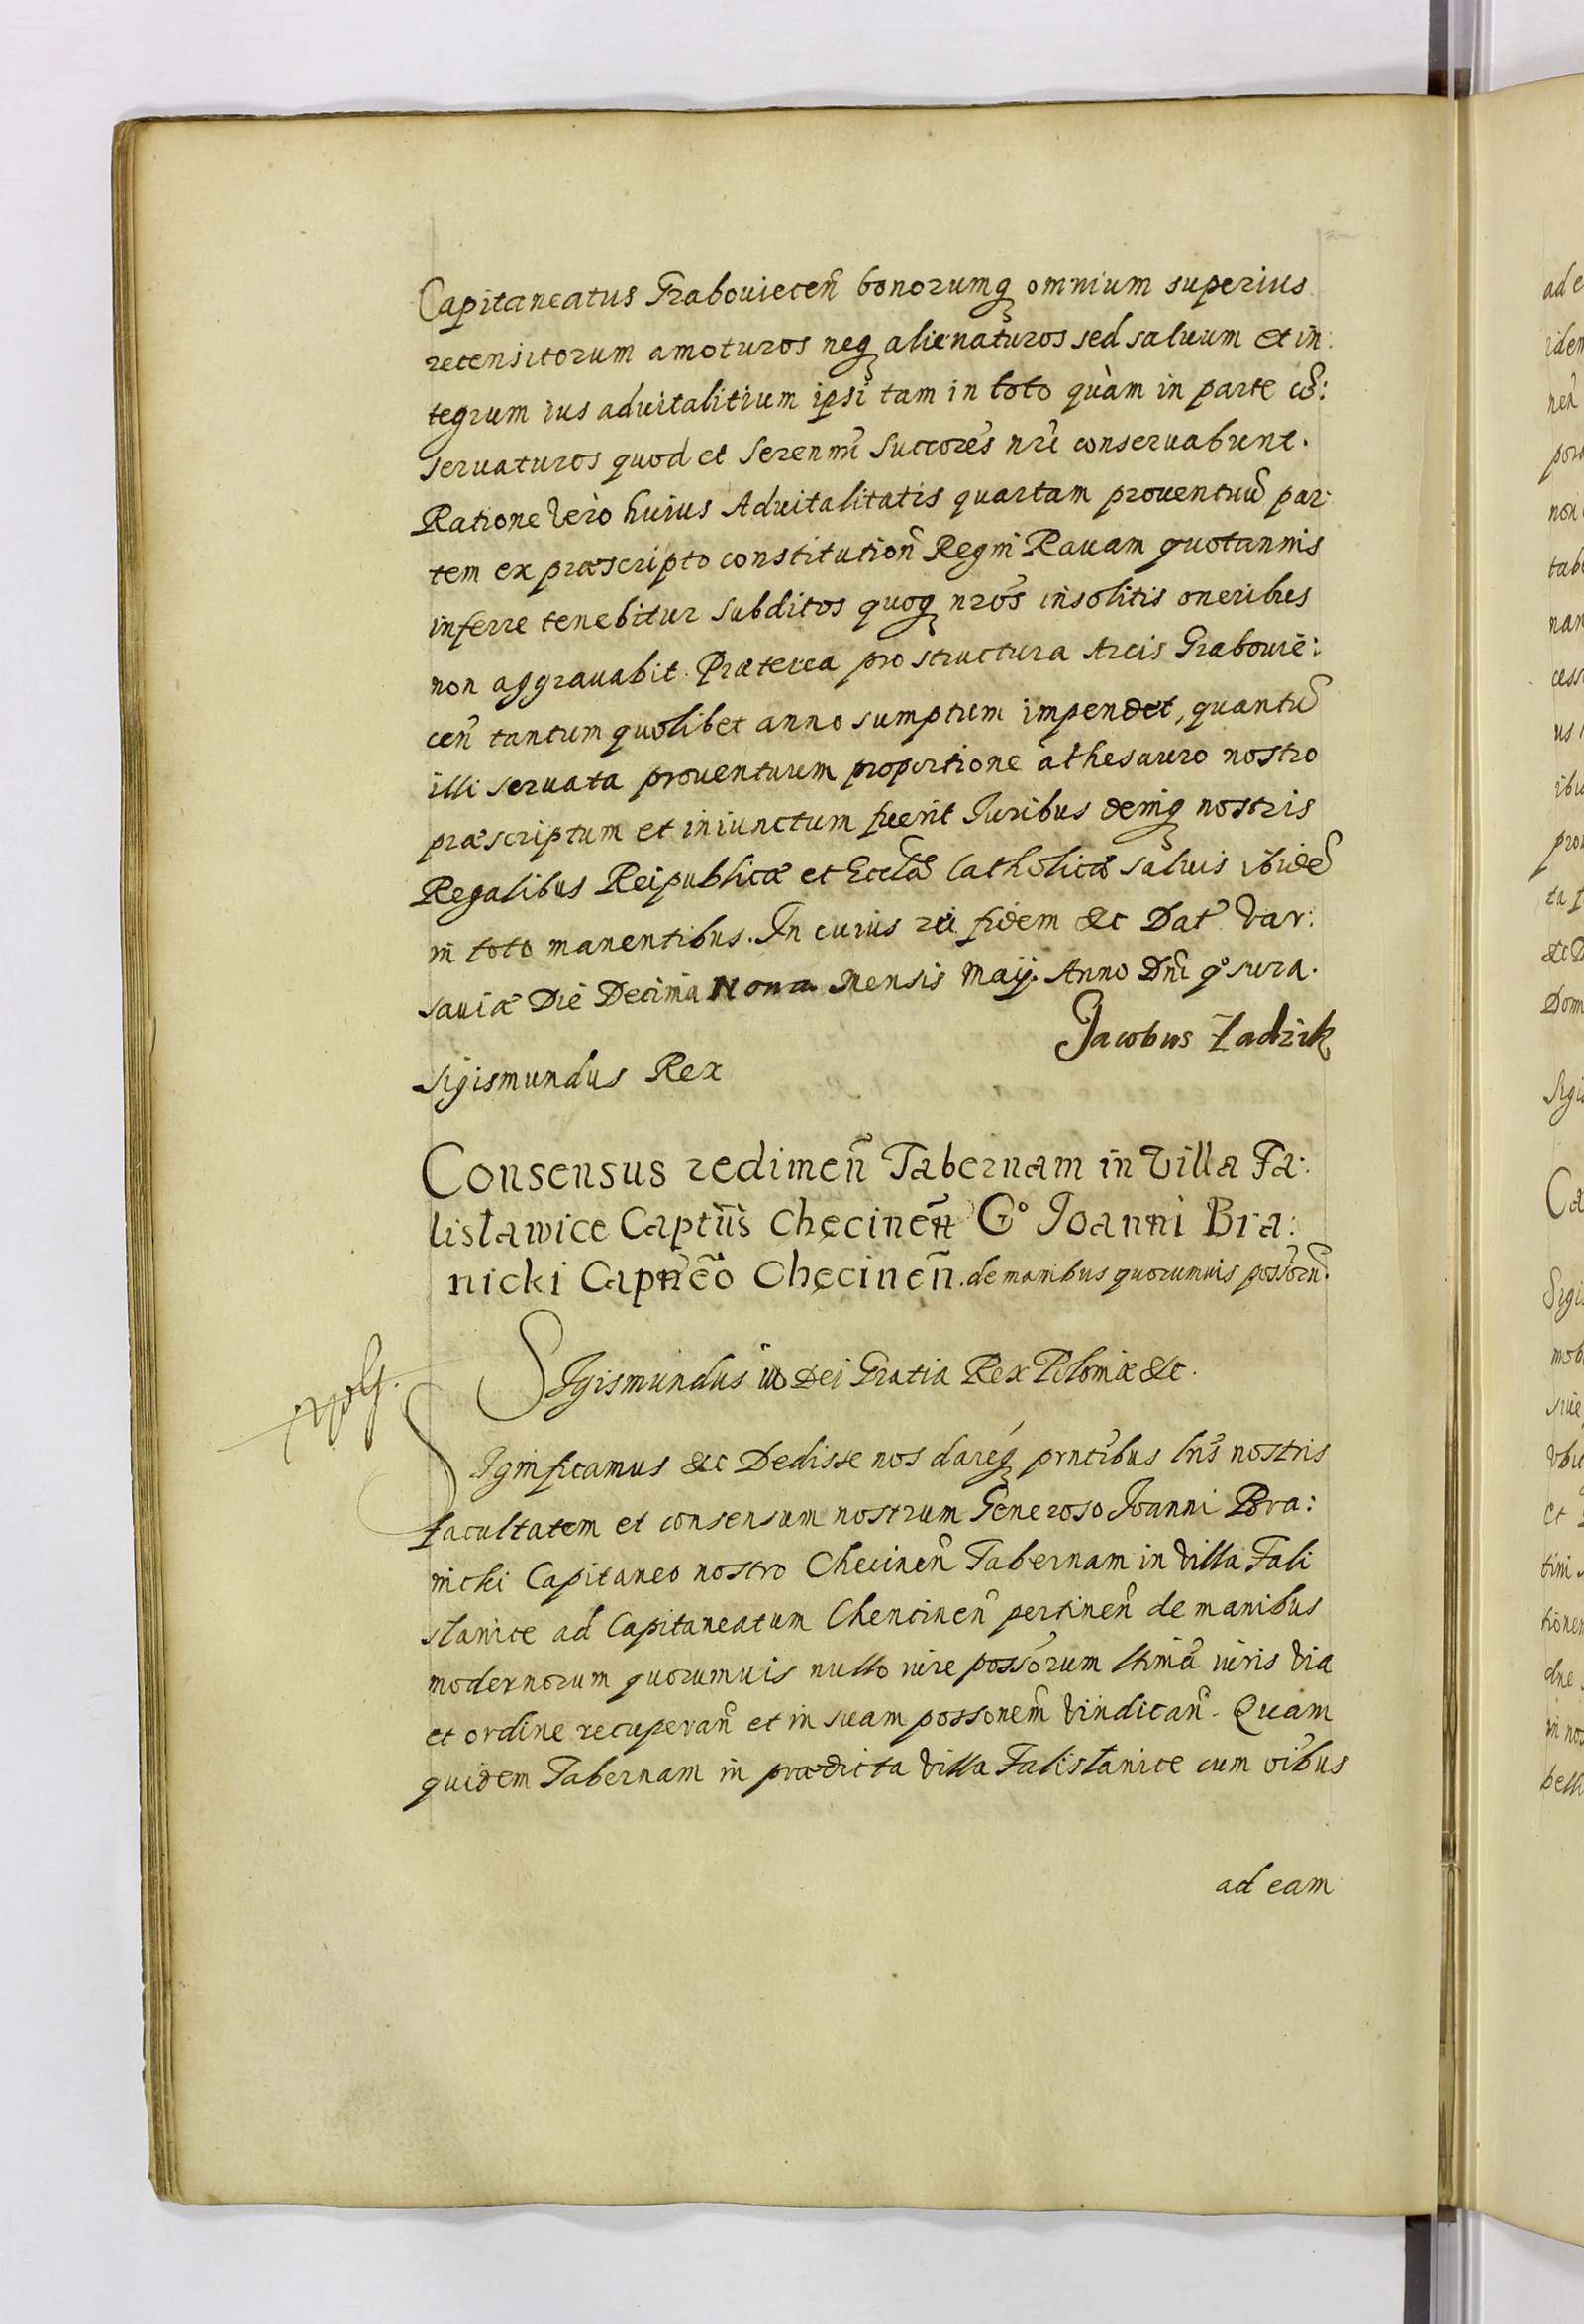 Capitaneatus Graboviecen̄ bonorumq́ omnium superius
recensitorum amoturos neq́ alienaturos sed salvum et in:
tegrum ius advitalitium ipsi tam in toto quàm in parte cõ:
servaturos quod et Serenmi Succores nri conservabunt.
Ratione Vero huius Advitalitatis quartam proventuũ par:
tem ex præscripto constitution̄ Regni Ravam quotannis
inferre tenebitur subditos quoq́ nros insolitis oneribus
non aggravabit. Præterea pro structura Arcis Grabovie:
cen̄ tantum quolibet anno sumptum impendet, quantũ
illi servata proventuum proportione à thesauro nostro
præscriptum et iniunctum fuerit Juribus deniq́ nostris
Regalibus Reipublicæ et Eccłæ Catholicæ salvis ibidẽ
in toto manentibus. In cuius rei fidem &c Dat Var:
saviæ Die Decima Nona Mensis Maij. Anno Dni qº sura.
Jacobus Zadzik
Sigismundus Rex
Consensus redimen̄ Tabernam in Villa Fa:
listawice Captiis Chęcinen̄ Gº Joanni Bra:
nicki Capneo Chęcinen̄. de manibus quorumvis possorũ.
Sigismundus iii Dei Gratia Rex Poloniæ &c.
Significamus &c Dedisse nos dareq́ prntibus lris nostris
facultatem et consensum nostrum Generoso Joanni Bra:
nicki Capitaneo nostro Checinen̄ Tabernam in Villa Fali
stawice ad Capitaneatum Chencinen̄ pertinen̄ de manibus
modernorum quorumvis nullo iure possorum ltima iuris Via
et ordine recuperan̄ et in suam possonem Vindican̄. Quam
quidem Tabernam in prædicta Villa Falistawice cum oibus
ad eam